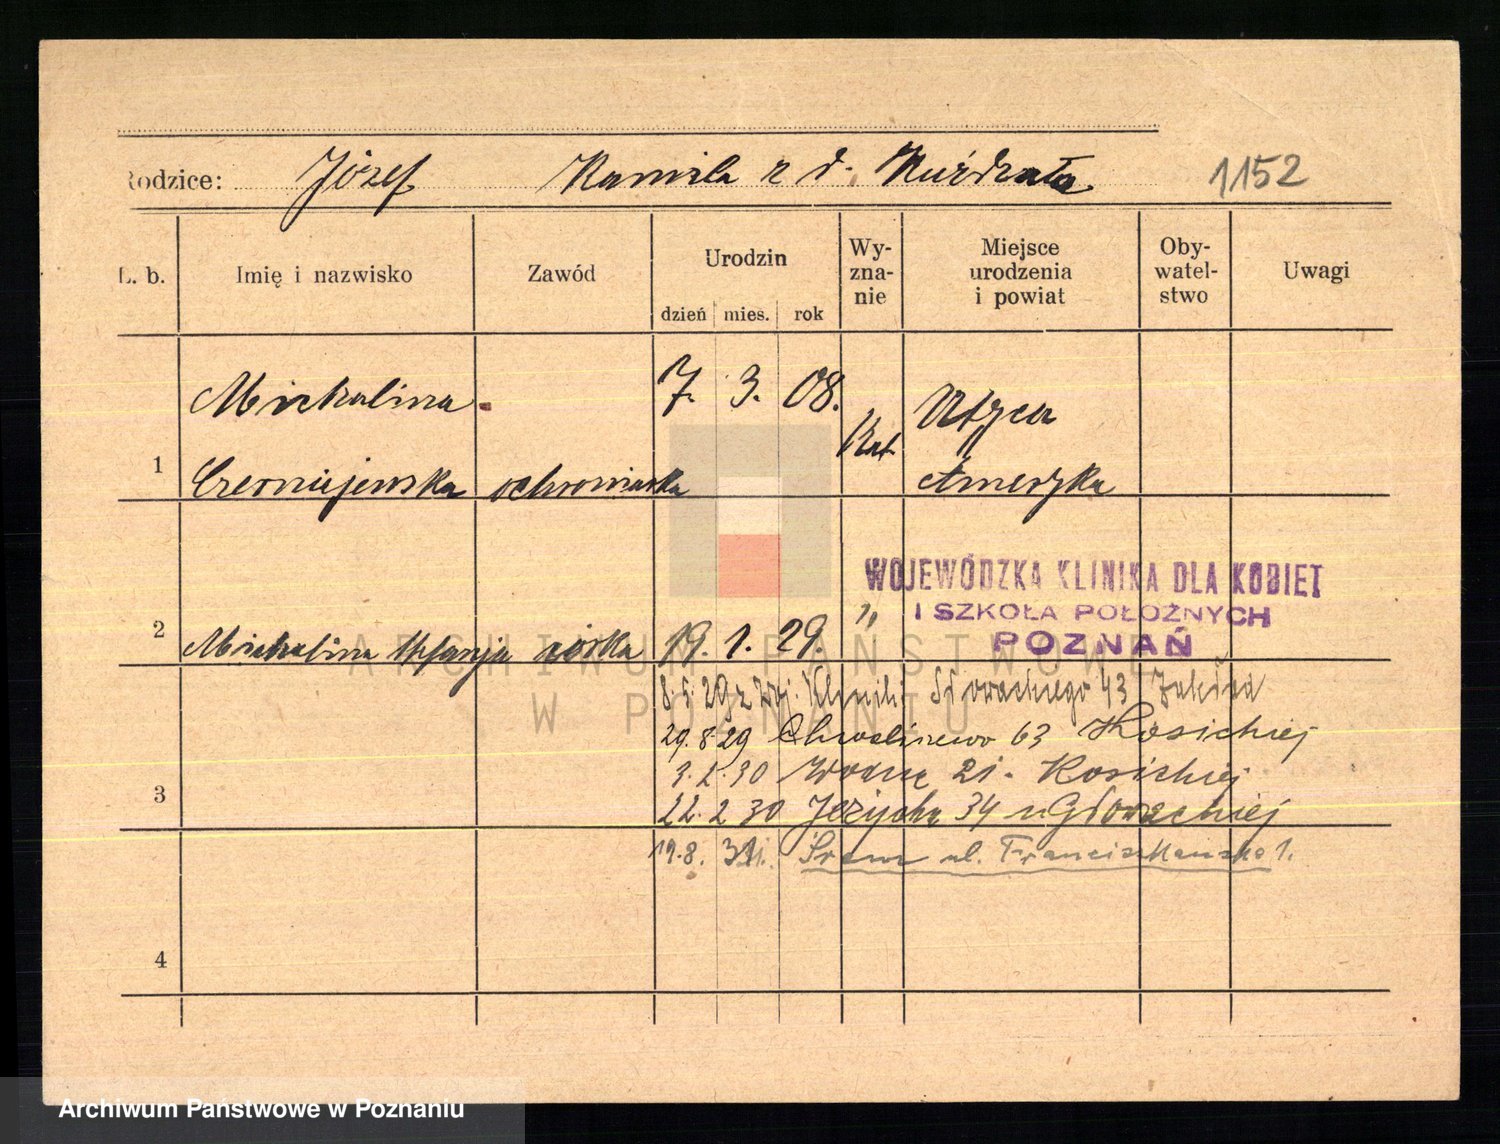 Rodzice: Józef Kamila z d. Kuźdzała 1152
L. b. Imię i nazwisko Zawód Urodzin dzień mies. rok Wy-zna-nie Miejsce urodzenia i powiat Oby-watel-stwo Uwagi
Michalina 7. 3. 08. Utyca
1 Czerniejewska ochroniarka Kat. Ameryka
WOJEWÓDZKA KLINIKA DLA KOBIET
I SZKOŁA POŁOŻNYCH
POZNAŃ
2 Michalina Stefanja córka 19. 1. 29. "
8.5.29 z Woj. Kliniki Słowackiego 43
29.8.29 Chwaliszewo 63 Kosickiej
3 3.2.30 Wodna 21. Kosickiej
22.2.30 Jeżycka 34 Głowackiej
19.8. 31. Śrem ul. Franciszkańska 1.
4
ARCHIWUM PAŃSTWOWE
W POZNANIU
Archiwum Państwowe w Poznaniu